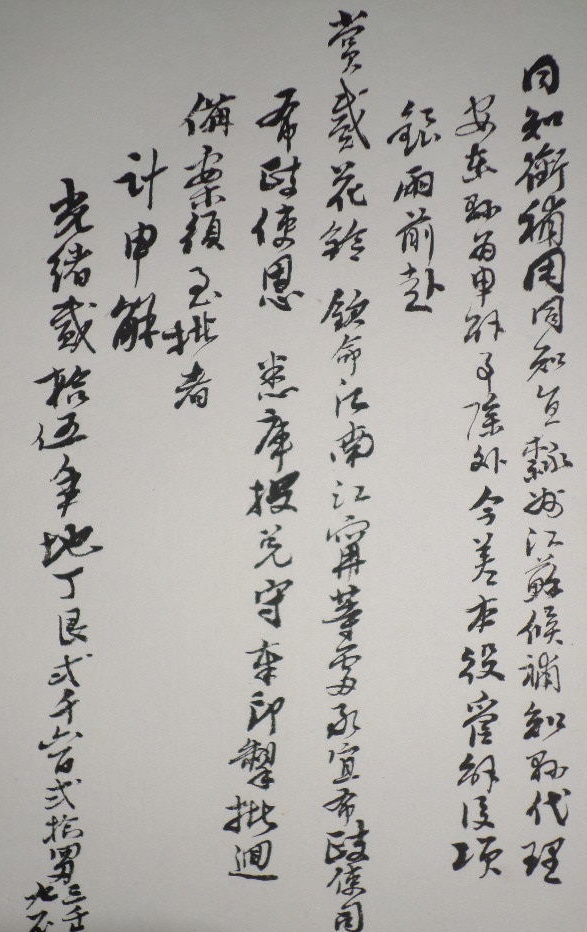 同知衔補用同知直隸州江蘇候補知縣代理
安東縣為申解事除外今差本役管解後項
銀兩前赴
賞戴花翎 欽命江南江寧等處承宣布政使司
布政使恩 憑庫投兌守奉印掣批迴
備案須至批者
計申解
光緒貳拾伍年地丁艮弍千六百弍拾